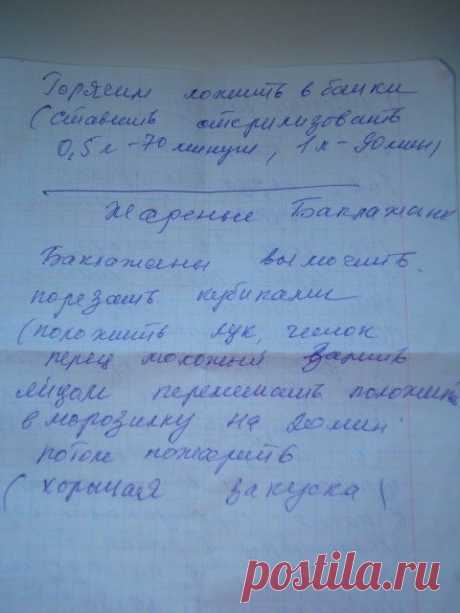 Горячим ложить в банки
(ставить стерилизовать
0,5 л - 70 минут, 1 л - 90 мин)
Жареные Баклажаны
Баклажаны вымочить
порезать кубиками
(положить лук, чеснок
перец молотый залить
яйцом перемешать положить
в морозилку на 20 мин
потом пожарить
(хорошая закуска)
postila.ru